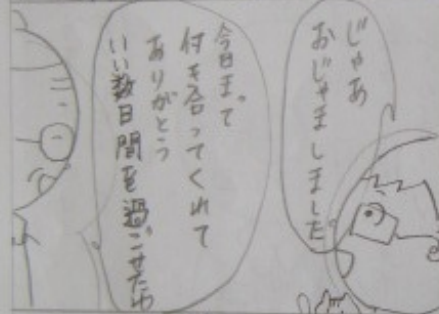 じゃあ
おじゃましました
今日まで
付き合ってくれて
ありがとう
いい数日間を過ごせたゆ